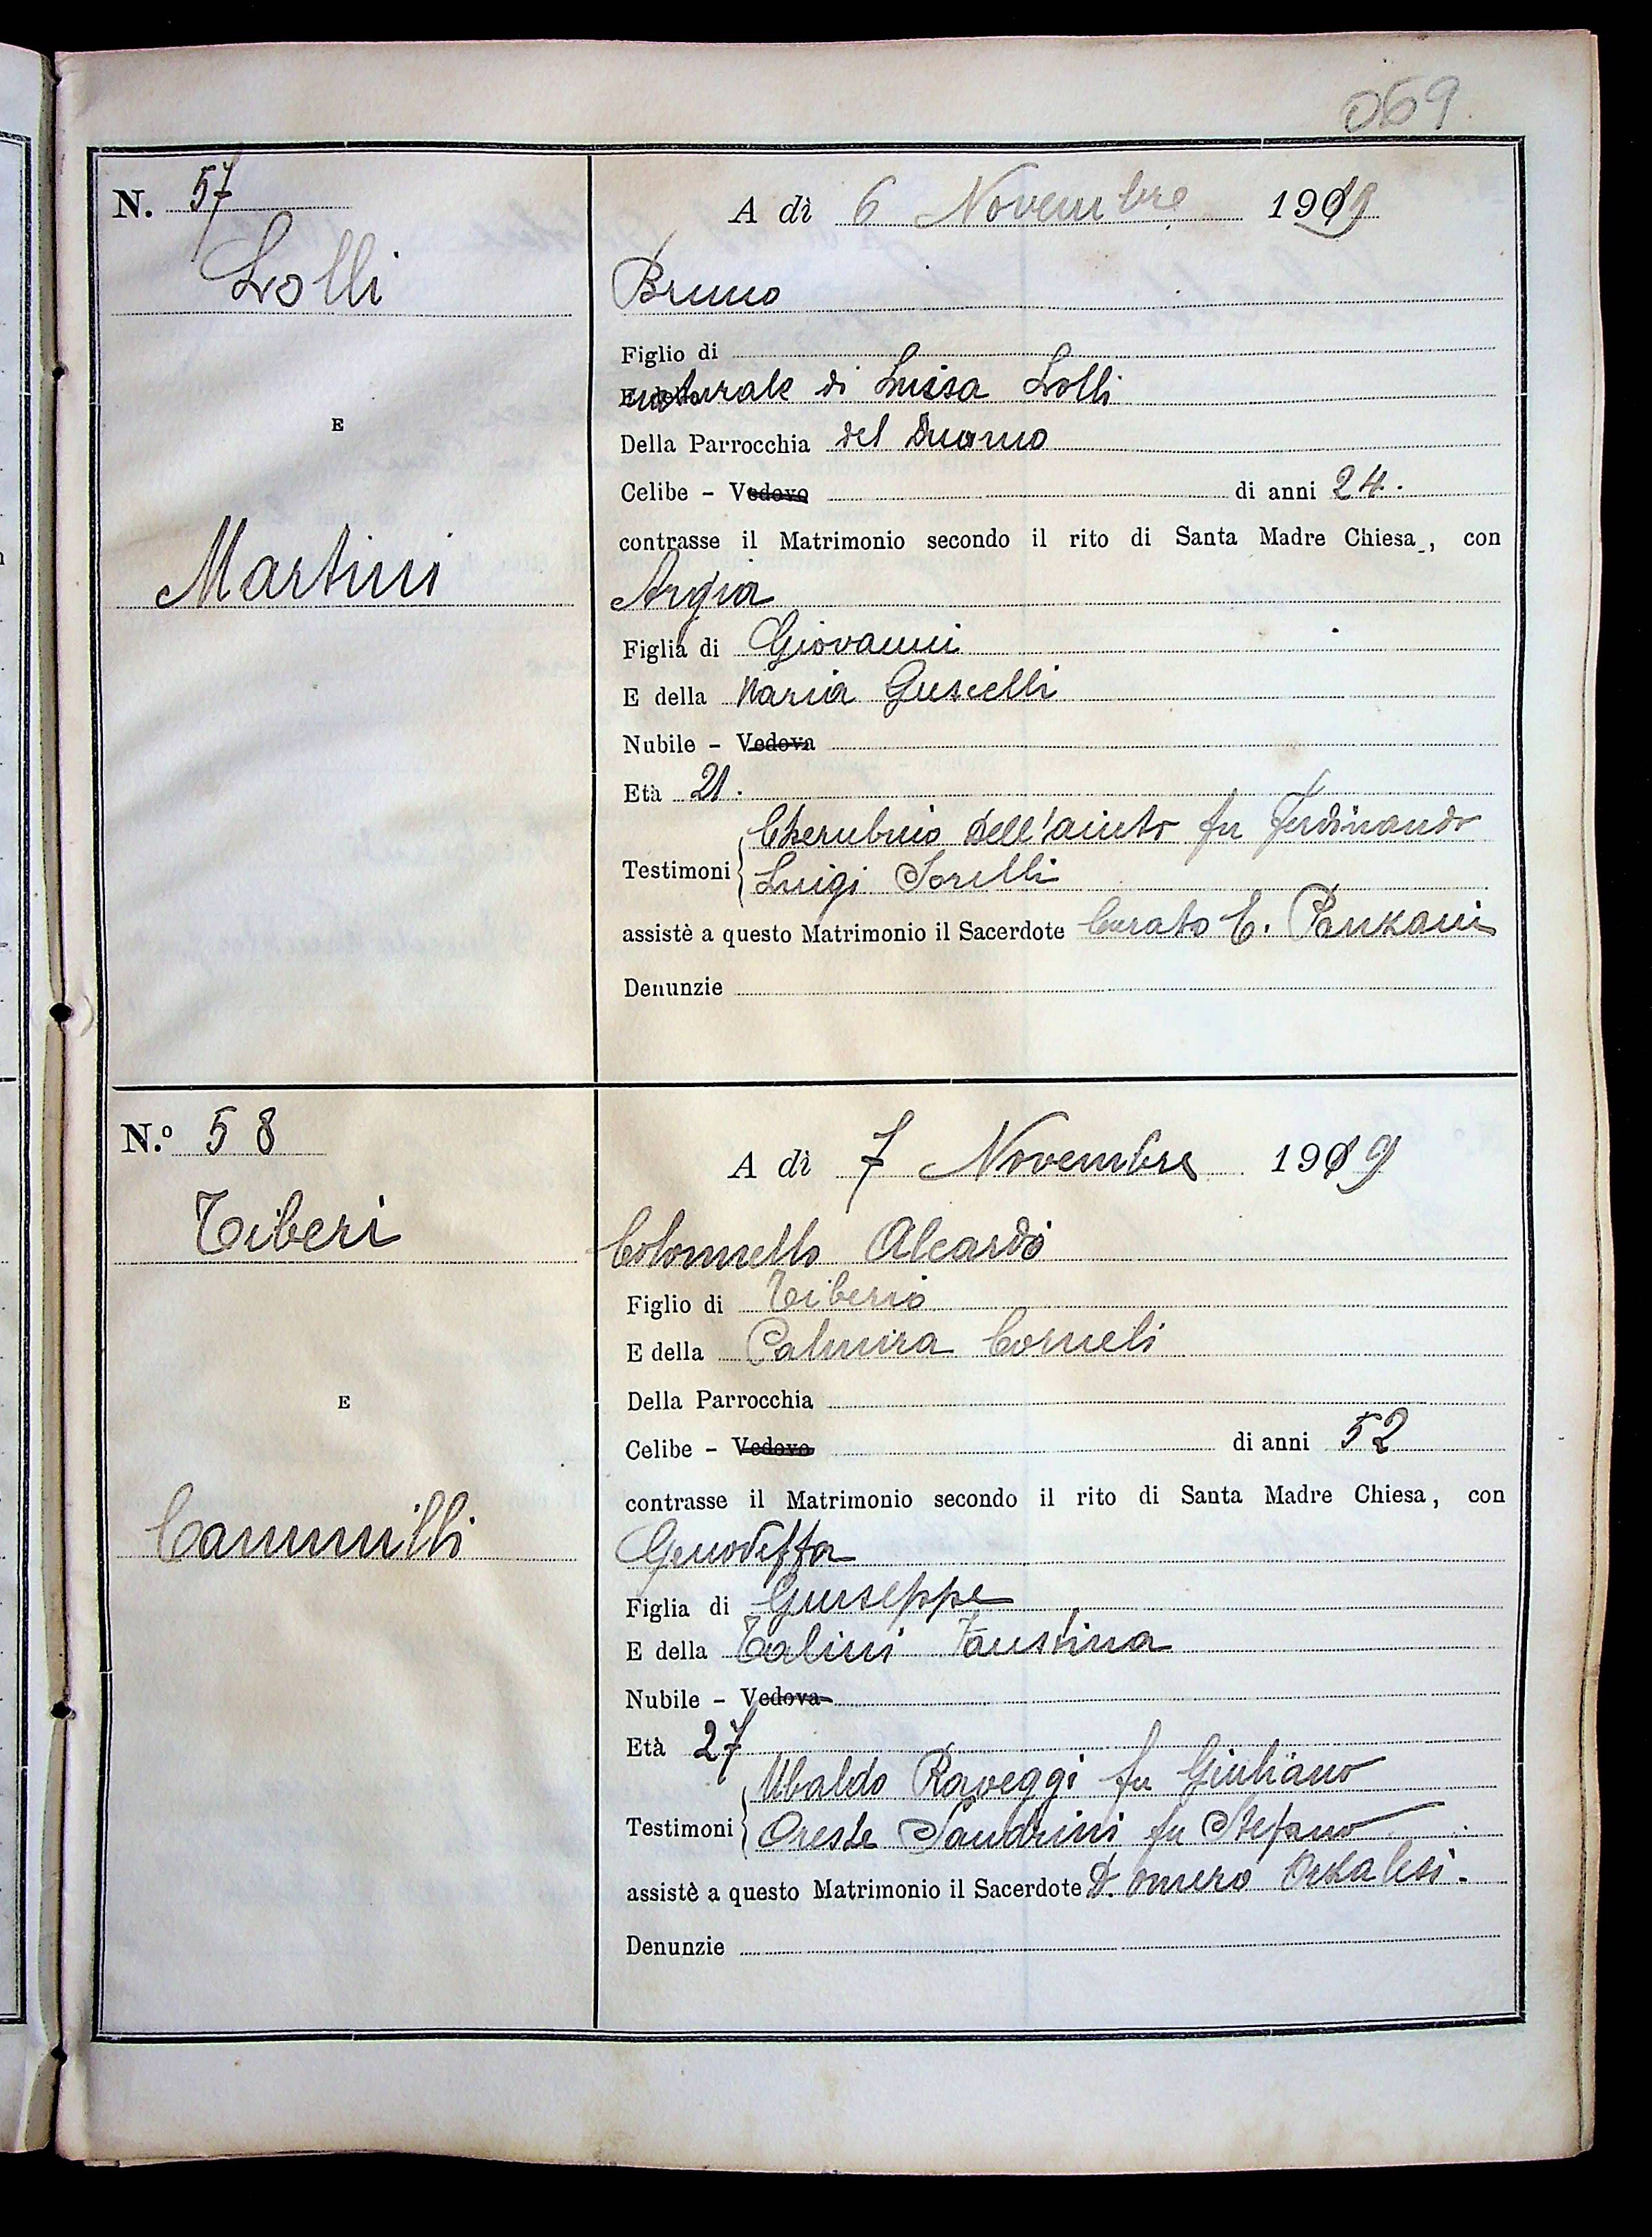 069
N. 57
Lolli
E
Martini
A dì 6 Novembre 1919
Bruno
Figlio di
naturale di Luisa Lolli
Della Parrocchia del Duomo
Celibe - Vedovo di anni 24.
contrasse il Matrimonio secondo il rito di Santa Madre Chiesa, con
Argia
Figlia di Giovanni
E della Maria
Nubile - Vedova
Età 21.
Cherubino Dell'aiuto fu Ferdinando
Testimoni
Luigi Sorelli
assistè a questo Matrimonio il Sacerdote Curato C. Panzani
Denunzie
N.º 58
Tiberi
E
Cammilli
A dì 7 Novembre 1919
Colonnello Aleardo
Figlio di Tiberio
E della Palmira Corneli
Della Parrocchia
Celibe - Vedovo di anni 52
contrasse il Matrimonio secondo il rito di Santa Madre Chiesa, con
Genoveffa
Figlia di Giuseppe
E della Talini Faustina
Nubile - Vedova
Età 27
Ubaldo Raveggi fu Giuliano
Testimoni
Oreste Sandrini fu Stefano
assistè a questo Matrimonio il Sacerdote D. Omero
Denunzie